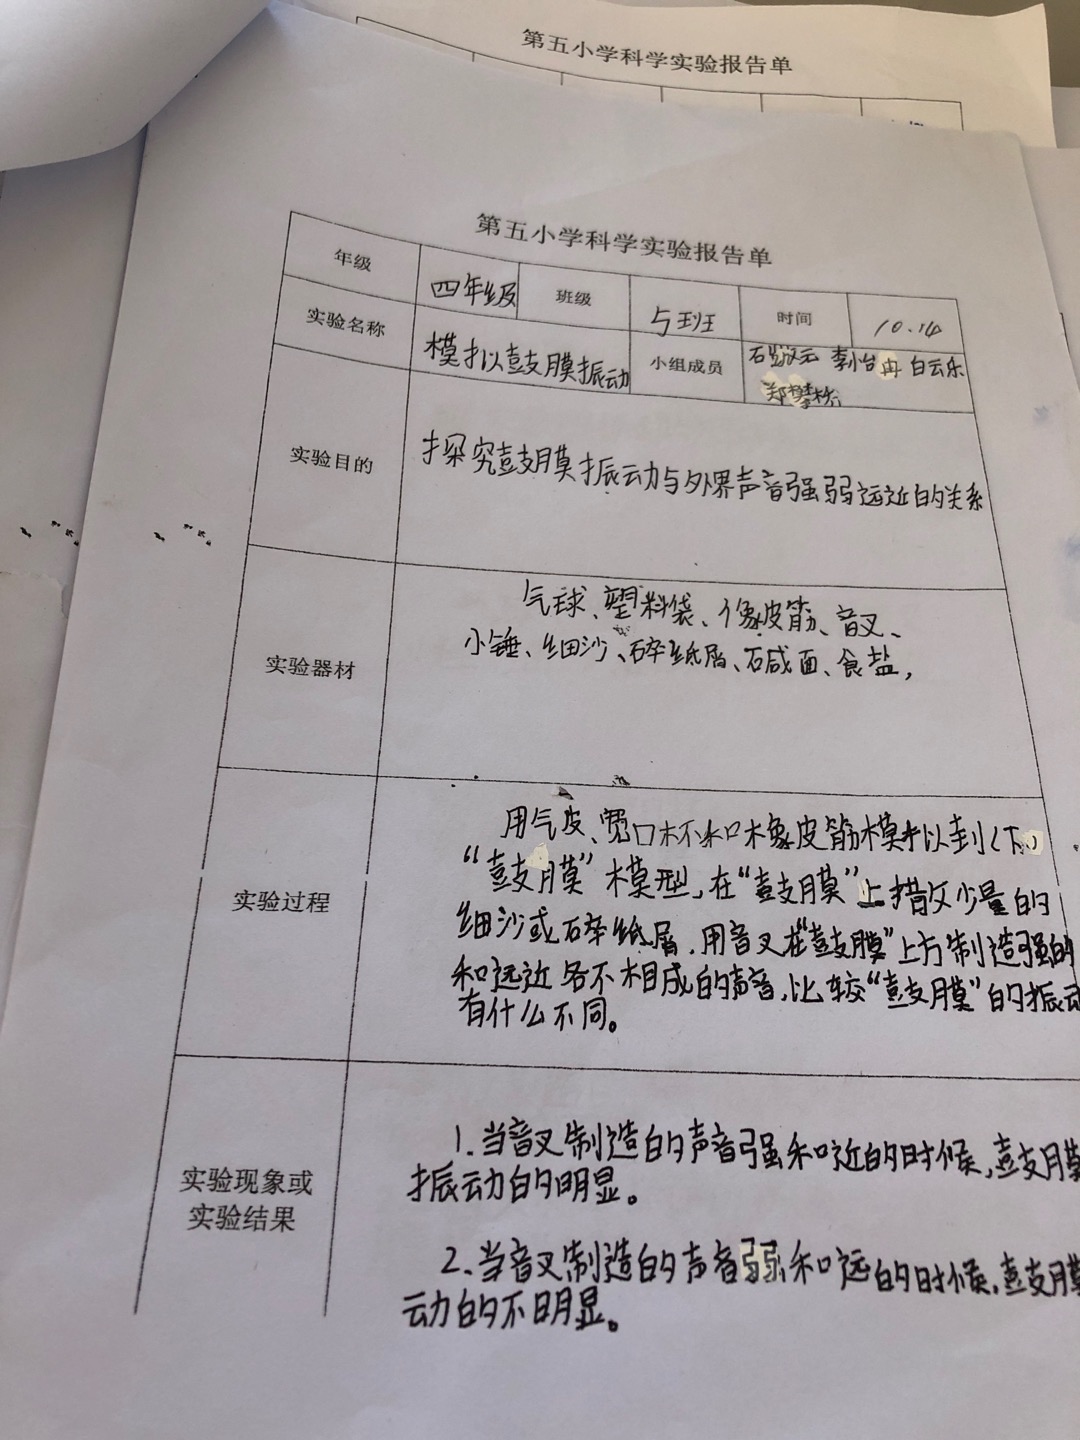 第五小学科学实验报告单
第五小学科学实验报告单
年级 四年级 班级 5班 时间 10.14
实验名称 模拟鼓膜振动 小组成员 李怡冉 白云乐
实验目的 探究鼓膜振动与外界声音强弱远近的关系
实验器材 气球、塑料袋、橡皮筋、音叉、
小锤、细沙、碎纸屑、碱面、食盐,
实验过程 用气皮、宽口杯和橡皮筋模拟
“鼓膜”模型,在“鼓膜”上撒少量的
细沙或碎纸屑,用音叉在“鼓膜”上方制造强的
和远近各不相成的声音,比较“鼓膜”的振动
有什么不同。
实验现象或
实验结果
1.当音叉制造的声音强和近的时候,鼓膜
振动的明显。
2.当音叉制造的声音弱和远的时候,鼓膜
动的不明显。